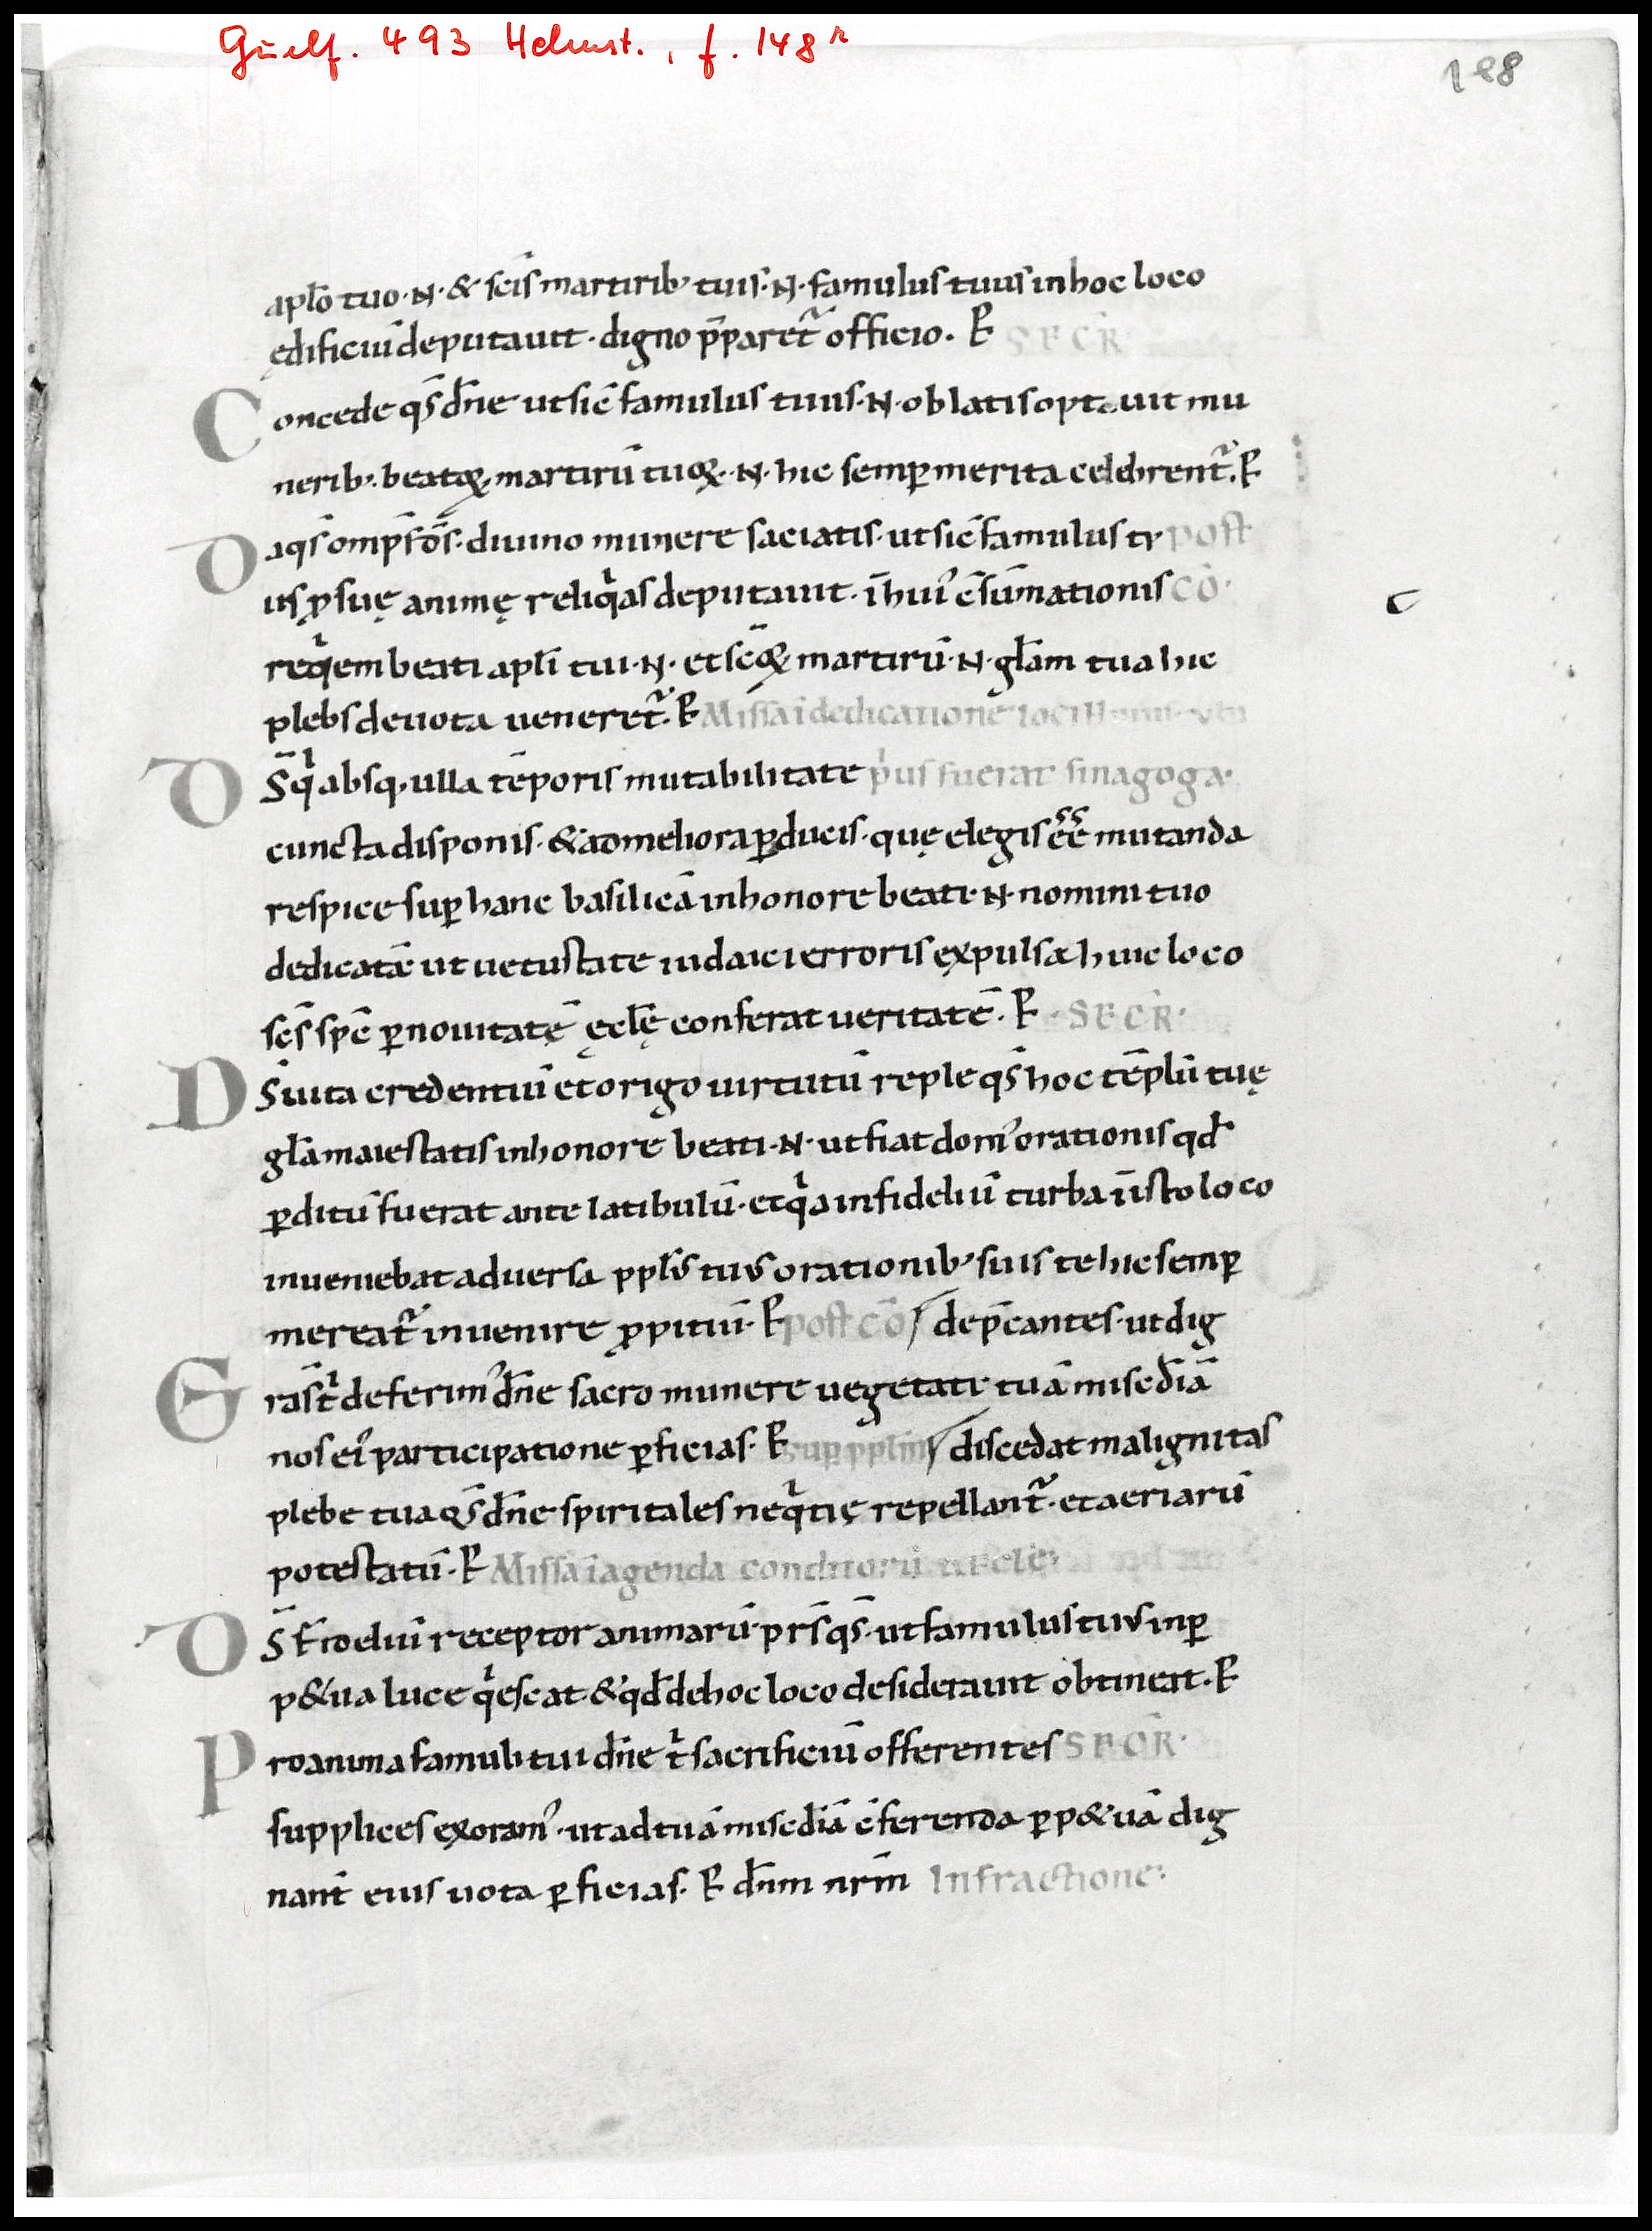 Guelf. 493 Helmst., f. 148r
148
apło tuo · N · & scīs martirib; tuis · N · famulus tuus in hoc loco
ędificiū deputauit · digno p̄paret᷑ officio. P SECR̄
Concede q̄s dn̄e ut sic̄ famulus tuus · N · oblatis optauit mu
nerib; beatoꝝ martirū tuoꝝ · N · hic semꝑ merita celebrent᷑. P
Da q̄s omp̄s d̄s · diuino munere saciatis · ut sic̄ famulus tr post
us ꝓ suę animę reliqͥas deputauit · ī hui᷒ c̄sūmationis CŌ ·
reqͥem beati apłi tui · N · et sc̄oꝝ martirū · N · głam tua hic
plebs deuota ueneret᷑. P Missa ī dedicatione loci
Ds̄ qͥ absq; ulla tēporis mutabilitate pͥus fuerat sinagoga ·
cuncta disponis · & ad meliora ꝑducis · quę elegis ēē mutanda
respice suꝑ hanc basilicā in honore beati · N · nomini tuo
dedicatā ut uetustate iudaici erroris expulsa huic loco
sc̄s sp̄c ꝑ nouitatē ęclę̄ conferat ueritatē. P · SECR̄ ·
Ds̄ iuita credentiū et origo uirtutū reple q̄s hoc tēplū tuę
głā maiestatis in honore beati · N · ut fiat dom᷒ orationis qd̄
ꝑditū fuerat ante latibulū · et qͥa infideliū turba ī isto loco
inueniebat aduersa ppl̄s tus orationib; suis te hic semꝑ
mereat᷑ inuenire ꝓpitiū · P post cō / dep̄cantes · ut dig
Gras̄ tͥ deferim᷒ dn̄e sacro munere uegetati tuā misc̄diā
nos ei᷒ participatione ꝑficias · P Suꝑ pplm̄ / discedat malignitas
plebe tua q̄s dn̄e spiritales neqͥtię repellant᷑ · et aeriarū
potestatū · P Missa ī agenda conditorū
Ds̄ fideliū receptor animarū · pr̄s q̄s · ut famulus tuus inꝑ
p&ua luce qͥescat · & qd̄ de hoc loco desiderauit obtineat. P
Pro anima famuli tui dn̄e tͥ sacrificiū offerentes SECR̄ ·
supplices exoram᷒ · ut ad tuā misc̄diā c̄ferenda ꝑp&uā dig
nant̄ eius uota ꝑficias · P dn̄m nr̄m Infractione: